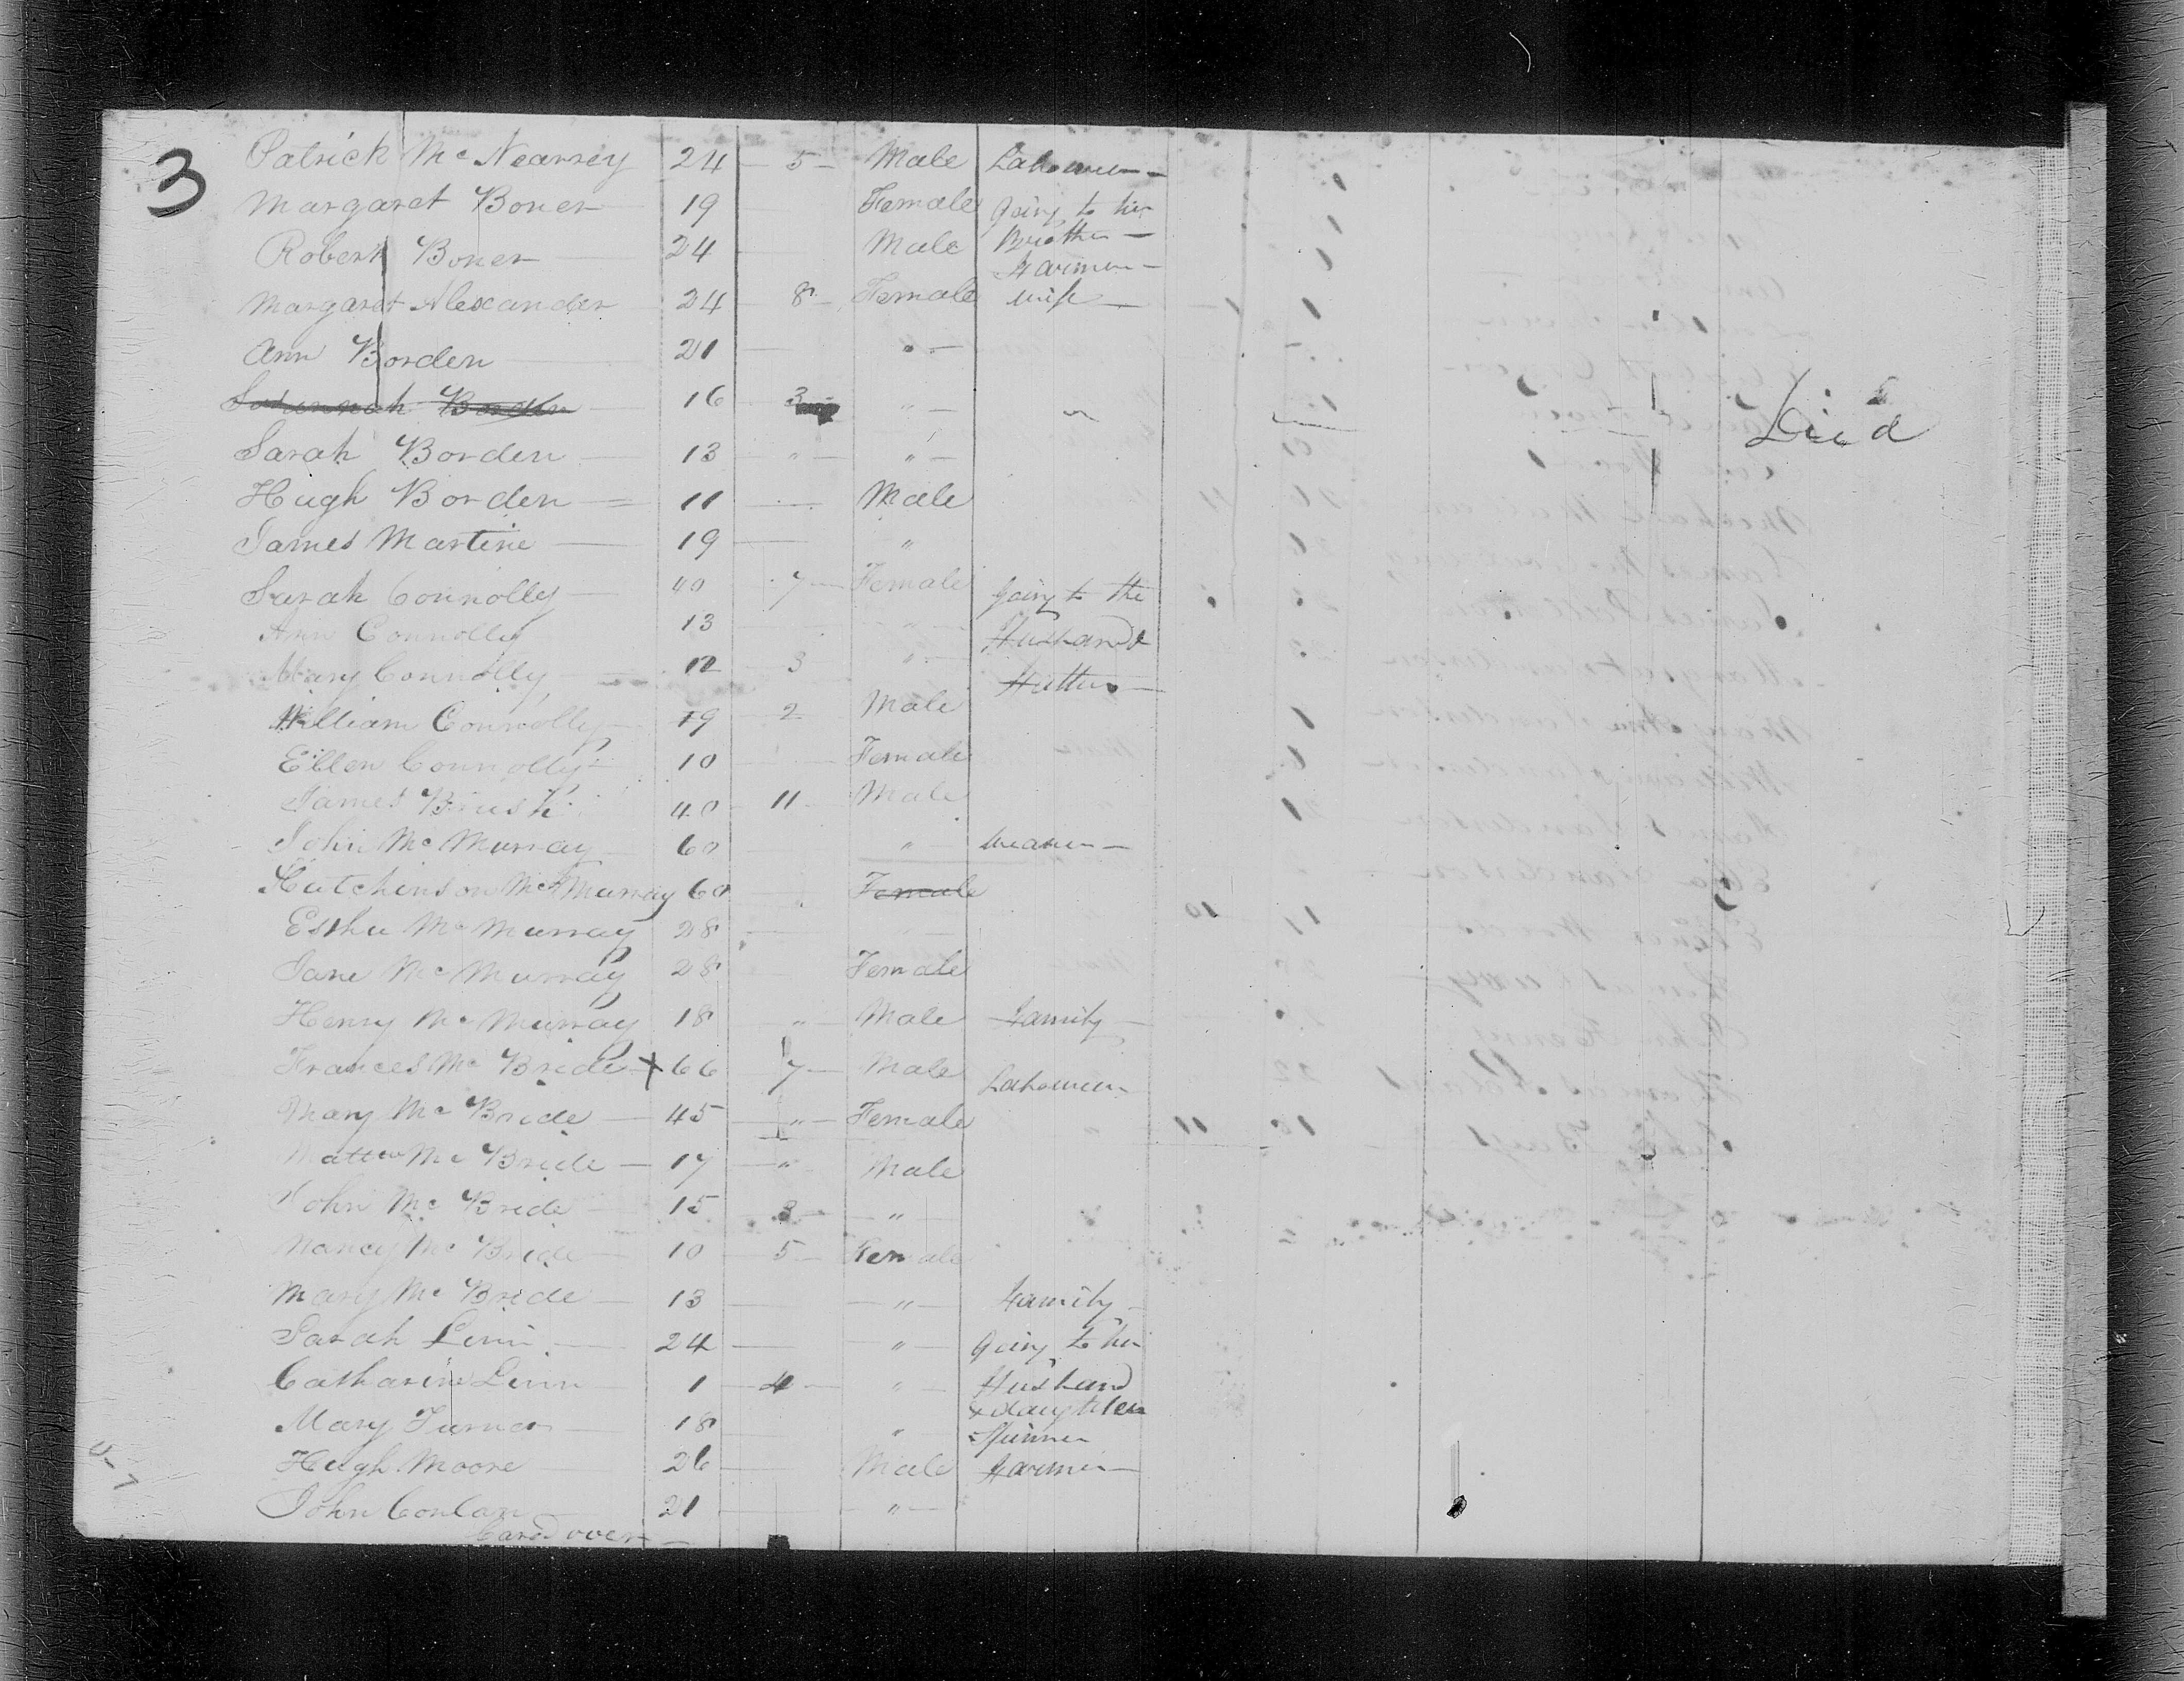 3
Patrick Mc Nearney 24 — 5 — Male Labourer —
Margaret Boner 19 Female going to her
Robert Boner — 24 Male Brother —
Farmer —
Margaret Alexander 24 — 8 — Female wife —
Ann Borden — 21 — " —
Susannah Borden — 16 3 " — " Died
Sarah Borden — 13 " — " —
Hugh Borden — 11 — Male
James Martine — 19 — "
Sarah Connolly — 40 7 — Female going to the
Ann Connolly 13 " Husband &
Mary Connolly — 12 — 3 " —
William Connolly — 19 2 Male
Ellen Connolly — 10 Female
James Brush 40 11 — Male
John Mc Murray — 60 " weaver —
Hutchinson Mc Murray 60 Female
Esther Mc Murray 28 —
Jane Mc Murray 28 Female
Henry Mc Murray 18 " — Male family —
Frances Mc Bride + 66 7 — Male Labourer
Mary Mc Bride — 45 — " — Female
Mattw Mc Bride — 17 — " Male
John Mc Bride — 15 3 — — " —
Nancy Mc Bride — 10 — 5 — Female
Mary Mc Bride — 13 — — " — family —
Sarah Linn — 24 — " — going to her
Catharine Linn — 1 — 4 — " — Husband
& daughter
Mary Turner — 18 " Spinner
Hugh Moore — 26 — Male farmer —
John Conlan — 21 — — " —
Card over —